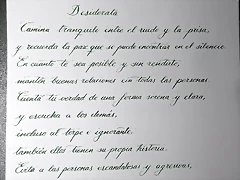 Desiderata
Camina tranquilo entre el ruido y la prisa,
y recuerda la paz que se puede encontrar en el silencio.
En cuanto te sea posible y sin rendirte,
mantén buenas relaciones con todas las personas.
Cuenta tu verdad de una forma serena y clara,
y escucha a los demás,
incluso al torpe e ignorante,
también ellos tienen su propia historia.
Evita a las personas escandalosas y agresivas,